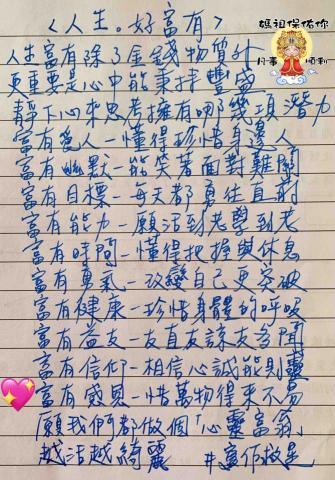 <人生。好富有>
媽祖保佑你
凡事順利
人生富有除了金錢物質外
更重要是心中能秉持豐盛
靜下心來思考擁有哪幾項潛力
富有愛人-懂得珍惜身邊人
富有幽默-能笑著面對難關
富有目標-每天都勇往直前
富有能力-願活到老學到老
富有時間-懂得把握與休息
富有勇氣-改變自己更突破
富有健康-珍惜身體的呼吸
富有益友-友直友諒友多聞
富有信仰-相信心誠能則靈
富有感恩-惜萬物得來不易
願我們都做個「心靈富翁」
越活越綺麗